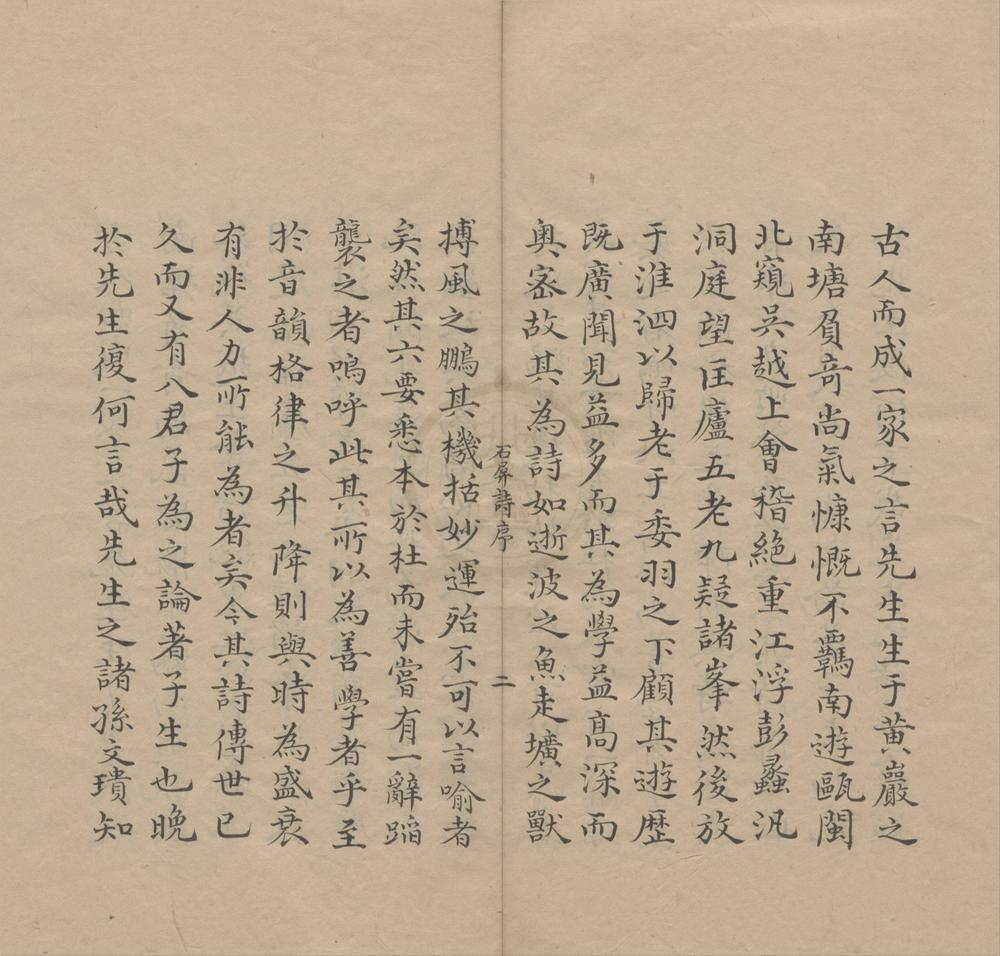 古人而成一家之言先生生于黃巖之
南塘負奇尚氣慷慨不羈南遊甌閩
北窺吳越上會稽絕重江浮彭蠡汎
洞庭望匡廬五老九疑諸峯然後放
于淮泗以歸老于委羽之下顧其遊歷
既廣聞見益多而其為學益高深而
奥密故其為詩如逝波之魚走壙之獸
石屏詩序
二
搏風之鵬其機括妙運殆不可以言喻者
矣然其六要悉本於杜而未嘗有一辭蹈
襲之者嗚呼此其所以為善學者乎至
於音韻格律之升降則與時為盛衰
有非人力所能為者矣今其詩傳世已
久而又有八君子為之論著子生也晚
於先生復何言哉先生之諸孫文璝知